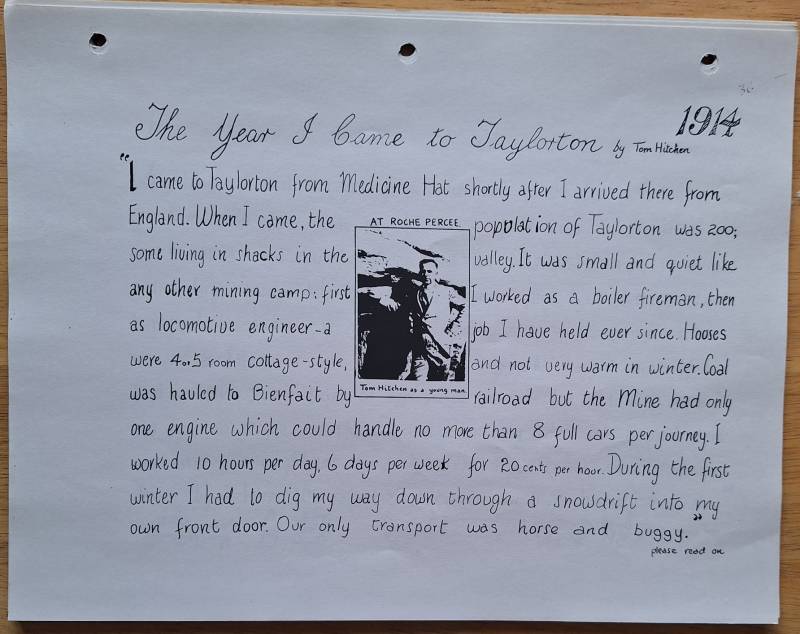 36
1914
The Year I Came to Taylorton by Tom Hitchen
"I came to Taylorton from Medicine Hat shortly after I arrived there from
England. When I came, the population of Taylorton was 200;
some living in shacks in the valley. It was small and quiet like
any other mining camp: first I worked as a boiler fireman, then
as locomotive engineer - a job I have held ever since. Houses
were 4 or 5 room cottage-style, and not very warm in winter. Coal
was hauled to Bienfait by railroad but the Mine had only
one engine which could handle no more than 8 full cars per journey. I
worked 10 hours per day, 6 days per week for 20 cents per hour. During the first
winter I had to dig my way down through a snowdrift into my
own front door. Our only transport was horse and buggy."
please read on
AT ROCHE PERCEE.
Tom Hitchen as a young man.